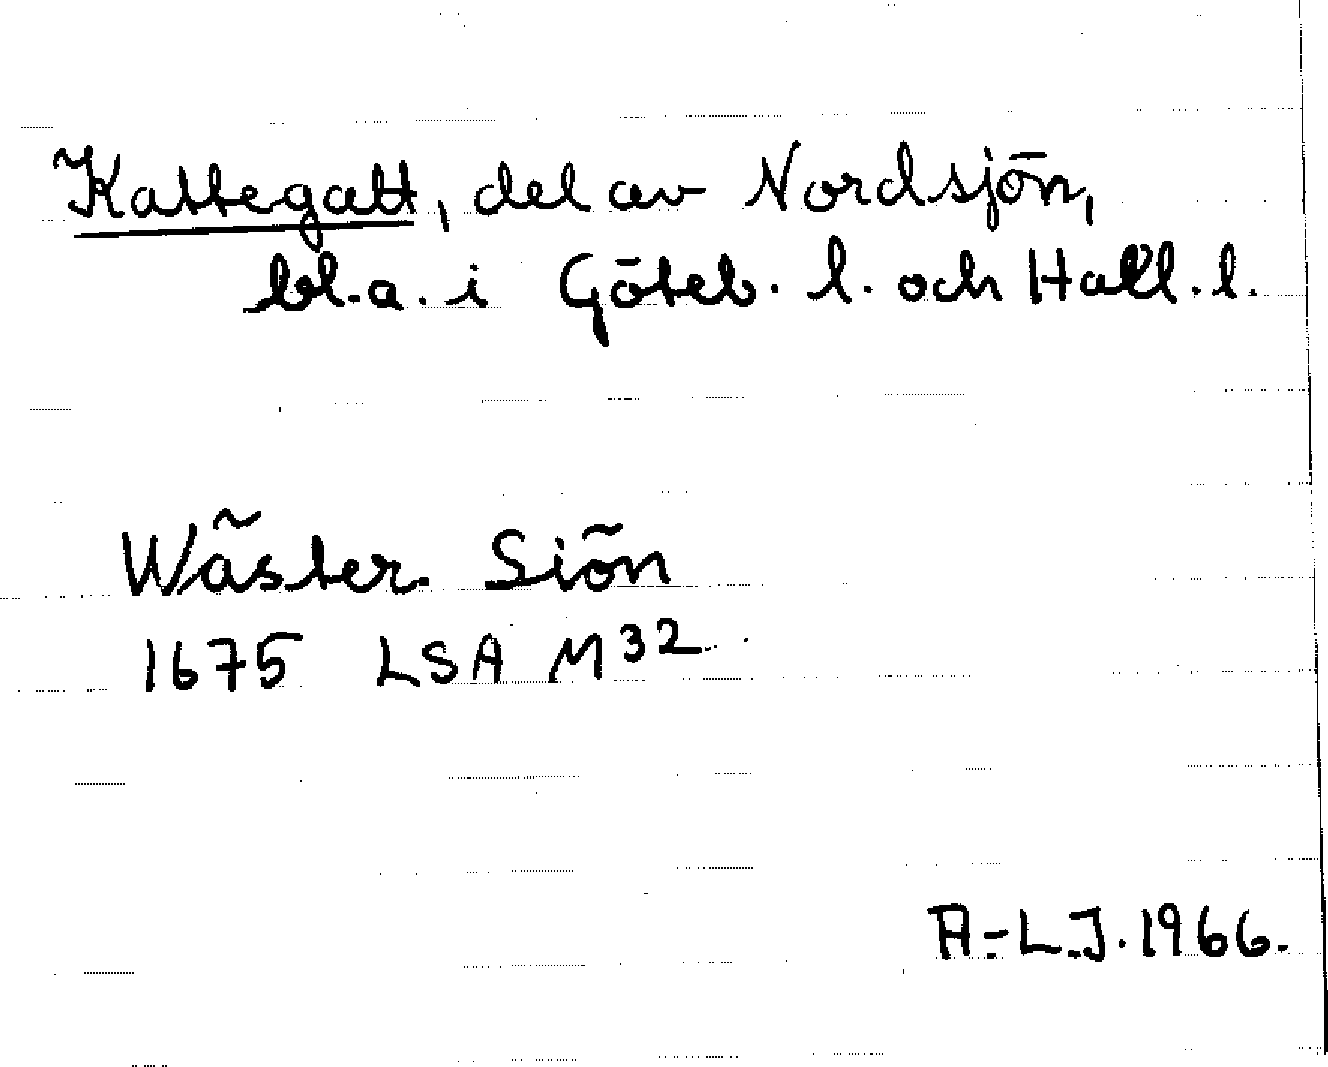 Kattegatt, del av Nordsjön,
bl.a. i Göteb. l. och Hall. l.
Wäster Siön
1675 LSA M32
A.-L.J. 1966.